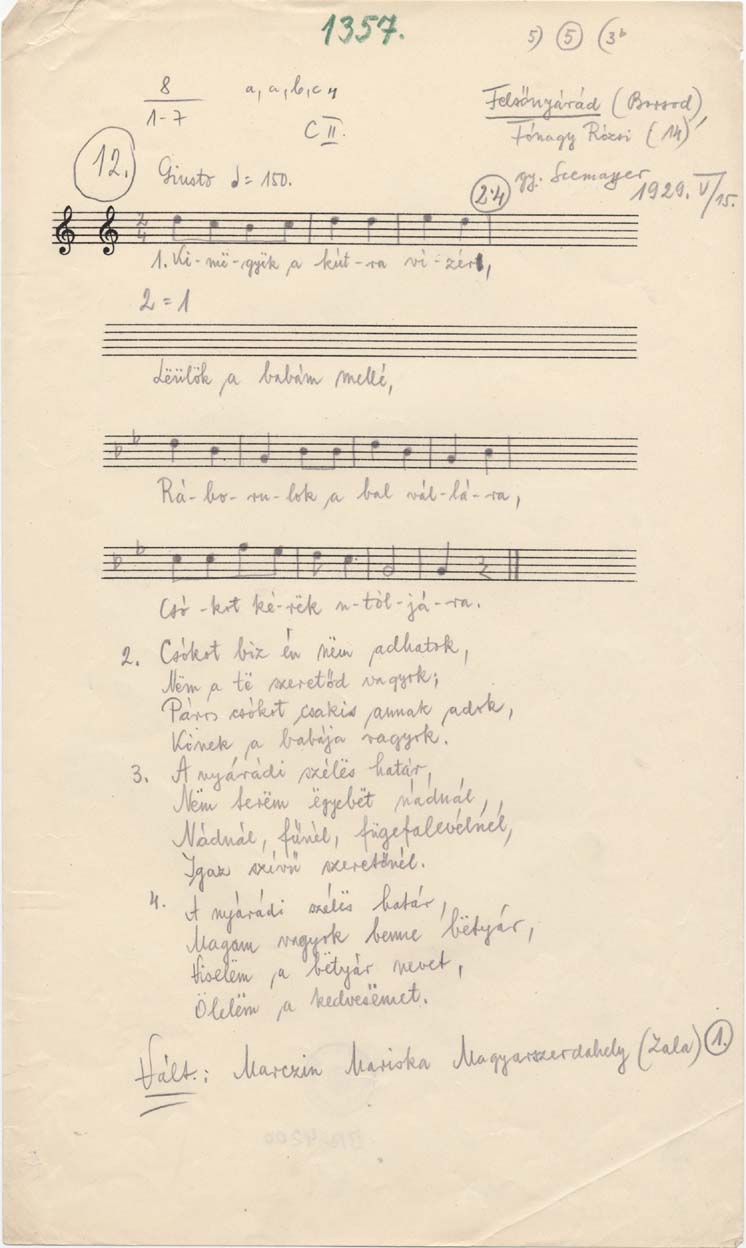 1357.
5) (5) (3b
8 a, a, b, c 4
1-7
C II.
Felsőnyárád (Borsod),
Fónagy Rózsi (14)
gy. Szemayer
1929. V/15.
12. Giusto = 150.
2·4
2
4
1. Ki-më-gyëk a kút-ra vi-zért,
2 = 1
Lëülök a babám mellé,
Rá-bo-ru-lok a bal vál-lá-ra,
Csó-kot ké-rëk u-tól-já-ra.
2. Csókot biz én nëm adhatok,
Nëm a të szeretőd vagyok;
Páros csókot csakis annak adok,
Kinek a babája vagyok.
3. A nyárádi szélës határ,
Nëm terëm ëgyebët nádnál,
Nádnál, fűnél, fügefalevélnél,
Igaz szívű szeretőnél.
4. A nyárádi szélës határ,
Magam vagyok benne bëtyár,
Viselëm a bëtyár nevet,
Ölelëm a kedvesëmet.
Vált.: Marczin Mariska Magyarszerdahely (Zala) 1.